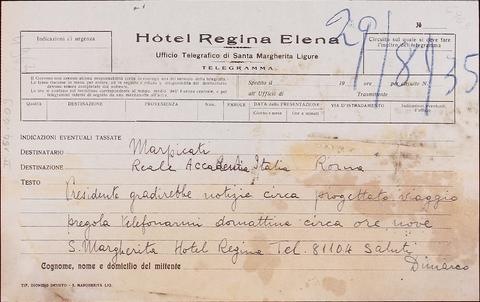 Hôtel Regina Elena
Indicazioni di urgenza
Ufficio Telegrafico di Santa Margherita Ligure
TELEGRAMMA
№
Circuito sul quale si deve fare l'inoltro del telegramma
29/8/35
Spedito il 19 ore pel circuito N.
all'Ufficio di Trasmittente
Qualifica DESTINAZIONE PROVENIENZA Num. PAROLE DATA della PRESENTAZIONE VIA D'ISTRADAMENTO
Giorno e mese Ore e minuti
INDICAZIONI EVENTUALI TASSATE
DESTINATARIO Marpicati
DESTINAZIONE Reale Accademia Italia Roma
TESTO Presidente gradirebbe notizie circa progettato viaggio
pregola telefonarmi domattina circa ore nove
S. Margherita Hotel Regina Tel. 81104 Saluti
Dimarco
Cognome, nome e domicilio del mittente
TIP. DIONISIO DEVOTO - S. MARGHERITA LIG.